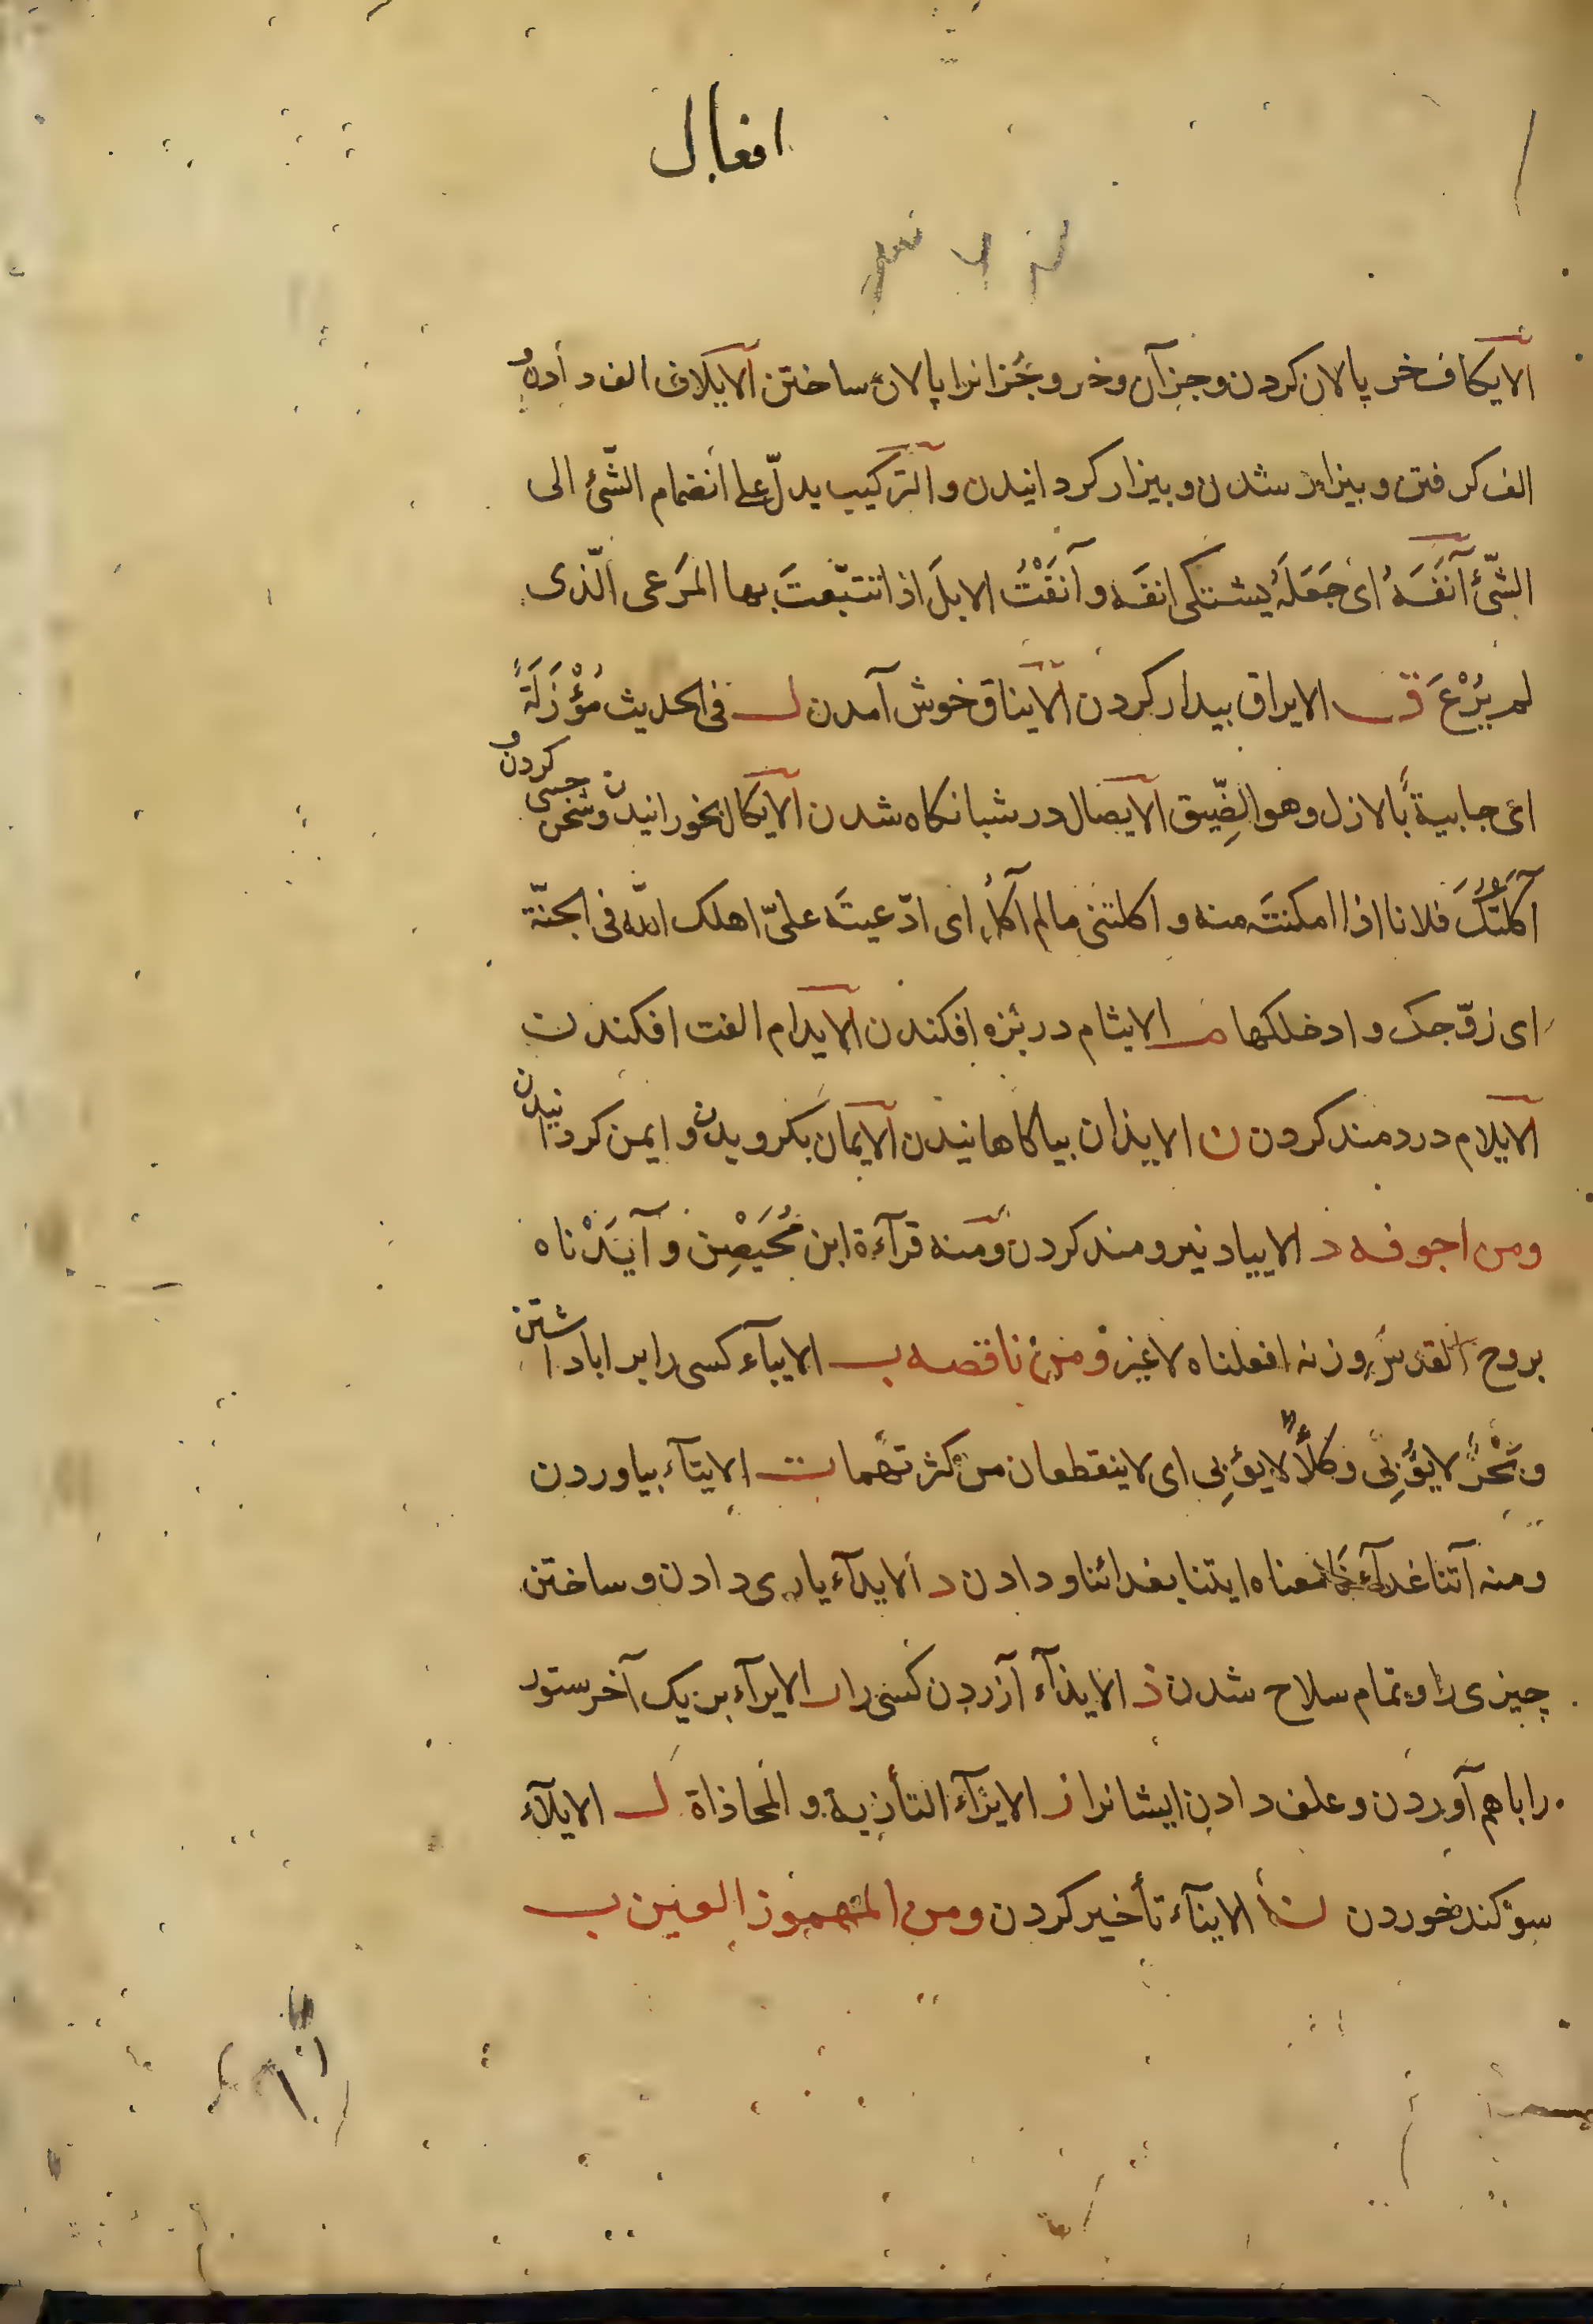 افعال
الایکاف خر پالان کردن و جز آن و خر و جُز انرا پالان ساختن الایلاف الف دادن و
الف کرفتن و بیزار شدن و بیزار کردانیدن و الترکیب یدلّ علی انضمام الشّئ الی
الشّئ آنَفَهُ ای جَعَلَهُ یشتکی انفَه و آنَفْتُ الابلَ اذا تتبّعتَ بها المَرعی الّذی
لم یُرْعَ ق الایراق بیدار کردن الایناق خوش آمدن ل فی الحدیث مُؤْزَلَةً
ای جابیة بالازل و هو الضّیق الایصال در شبانکاه شدن الایکال بخورانیدن و سخن چینی کردن و
آکَلتُکَ فلانا اذا امکنتَه منه و اکلتنی مالم آکل ای ادّعیتَه علیّ اهلک الله فی الجنّة
ای زوّجک و ادخلکها م الایثام در بزه افکندن الایدام الفت افکندن
الایلام دردمند کردن ن الایذان بیاکاهانیدن الایمان بکرویدن و ایمن کردانیدن
ومن اجوفه د الایید نیرومند کردن و منه قرآءة ابن مُحَیْصِن و آیَدْناه
بروح القدس وزنه افعلناه لاغیر ومن ناقصه ب الایبآء کسی را بر ابا داشتن
و بَحْرٌ لایُؤْبِی و کلأٌ لایؤبِی ای لاینقطعان من کثرتهما ت الایتآء بیاوردن
ومنه آتنا غدآءنا معناه ایتنا بغدائنا و دادن د الایدآء یاری دادن و ساختن
چیزی را و تمام سلاح شدن ذ الایذآء آزردن کسی را ر الایرآء بر یک آخر ستور
را با هم آوردن و علف دادن ایشانرا ز الایزآء التأزیة و المحاذاة ل الایلآء
سوکند خوردن ن الاینآء تأخیر کردن ومن المهموز العین ب